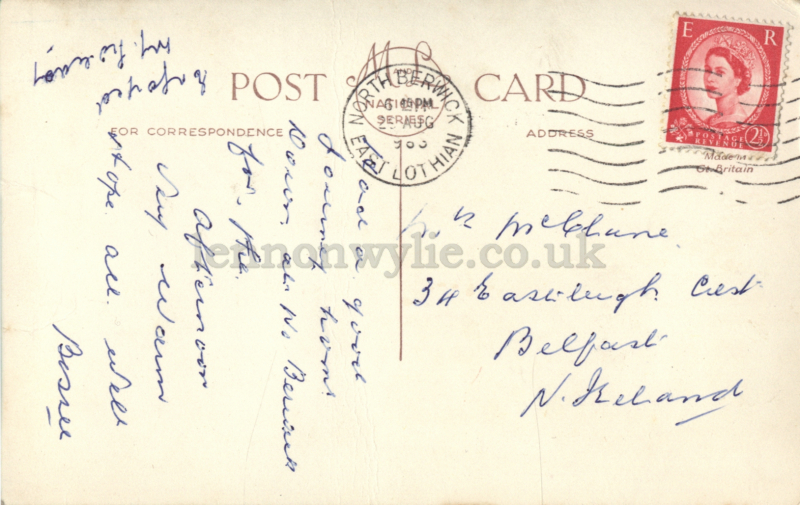 POST CARD
M&L
NATIONAL SERIES
FOR CORRESPONDENCE
ADDRESS
NORTH BERWICK
6 15 PM
AUG
EAST LOTHIAN
E R
POSTAGE
REVENUE
2½D
Made in
Gt. Britain
lennonwylie.co.uk
Mrs McClune.
34 Eastleigh Cres
Belfast
N. Ireland
Had a good
journey home
Down at No Berwick
for the
afternoon
Very warm
Hope all well
Bessie
enjoyed
my holiday